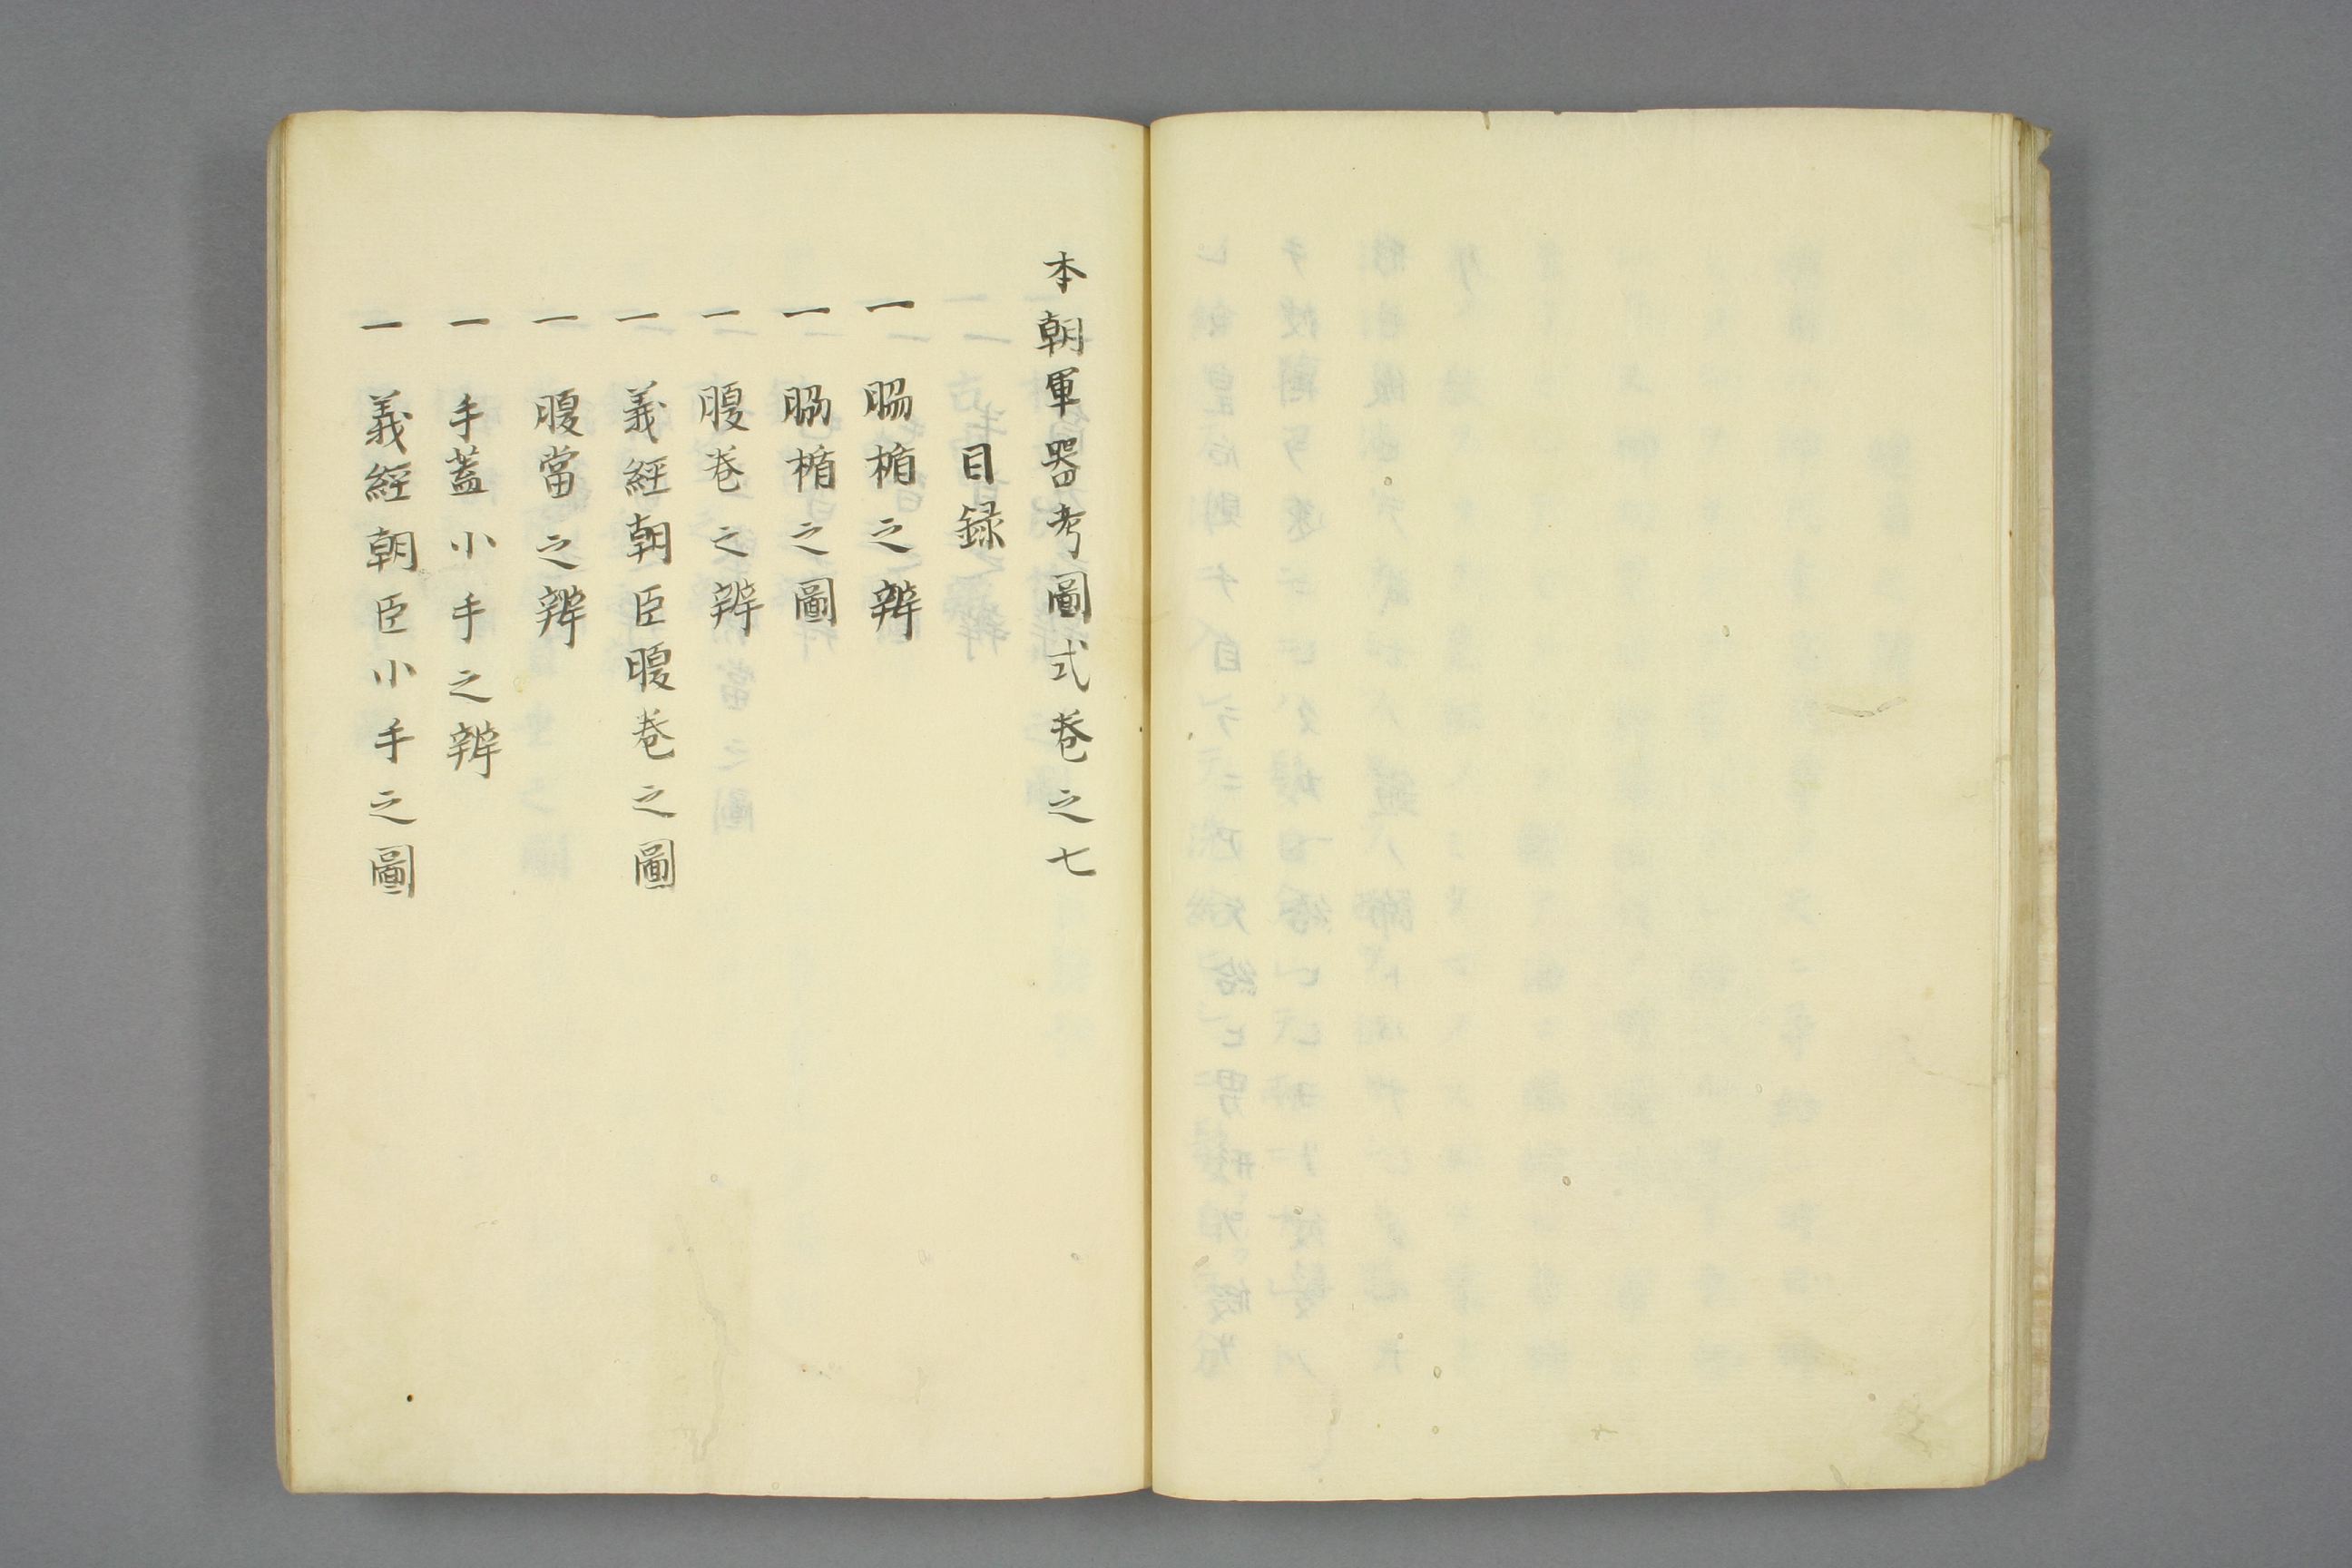 本朝軍器考圖式巻之七
目録
一 脇楯之辨
一 脇楯之圖
一 腹巻之辨
一 義經朝臣腹巻之圖
一 腹當之辨
一 手蓋小手之辨
一 義經朝臣小手之圖